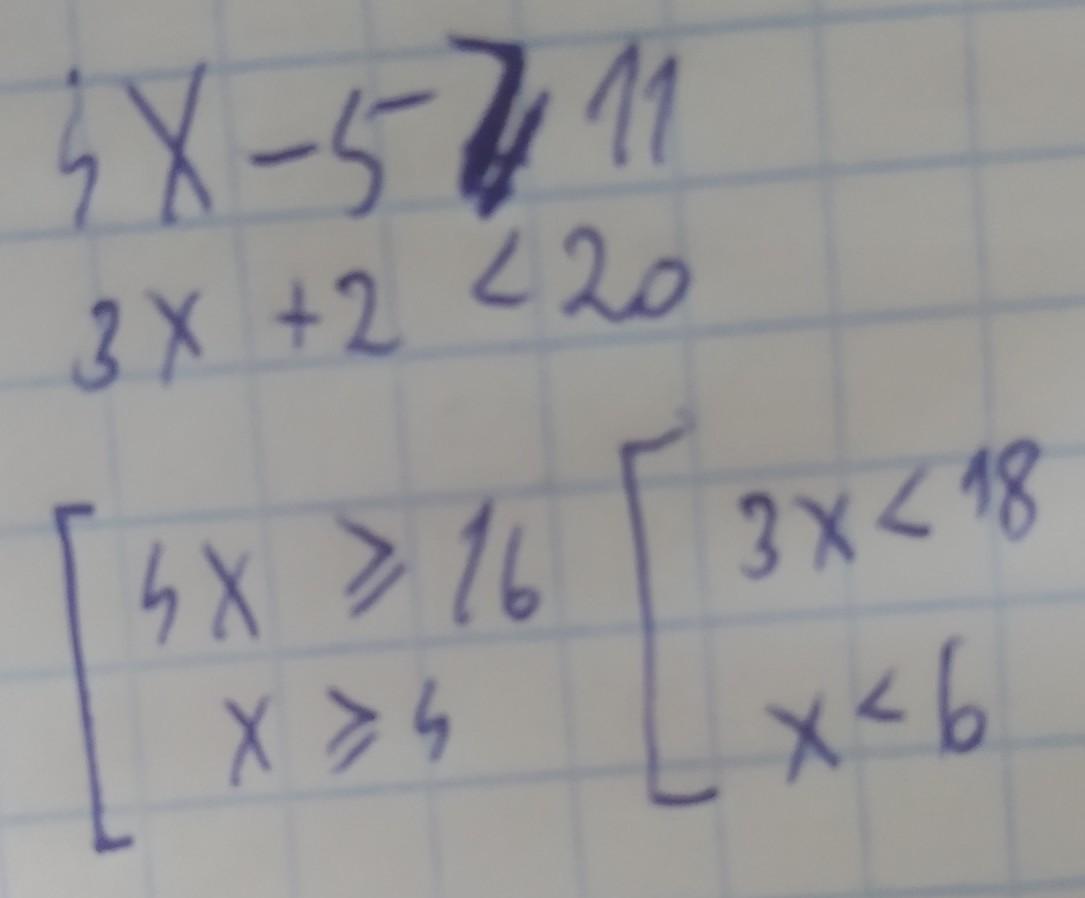 4X - 5 ≥ 11
3x + 2 < 20
4x ≥ 16
x ≥ 4
3x < 18
x < 6